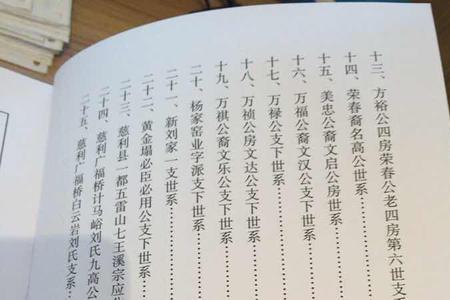 十三、方裕公四房荣春公老四房第六世支
十四、荣春裔名高公世系……
十五、美忠公裔文启公房世系……
十六、万福公裔文汉公支下世系……
十七、万禄公支下世系……
十八、万祯公房文达公支下世系……
十九、万祺公裔文乐公支下世系……
二十、杨家窑业字派支下世系……
二十一、新刘家一支世系……
二十二、黄金塌必臣必用公支下世系……
二十三、慈利县一都五雷山七王溪宗应
二十四、慈利广福桥计马峪刘氏九高公
二十五、慈利广福桥白云岩刘氏支系……